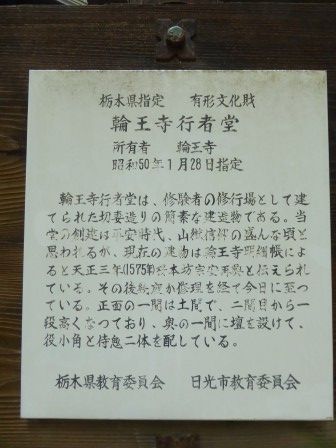 栃木県指定　有形文化財
輪王寺行者堂
所有者　輪王寺
昭和50年1月28日指定
輪王寺行者堂は、修験者の修行場として建
てられた切妻造りの簡素な建造物である。当
堂の創建は平安時代、山嶽信仰の盛んな頃と
思われるが、現在の建物は輪王寺明細帳によ
ると天正三年(1575年)桜本坊宗安再興と伝えられ
ている。その後幾度か修理を経て今日に至つ
ている。正面の一間は土間で、二間目から一
段高くなつており、奥の一間に壇を設けて、
役小角と侍鬼二体を配している。
栃木県教育委員会　日光市教育委員会